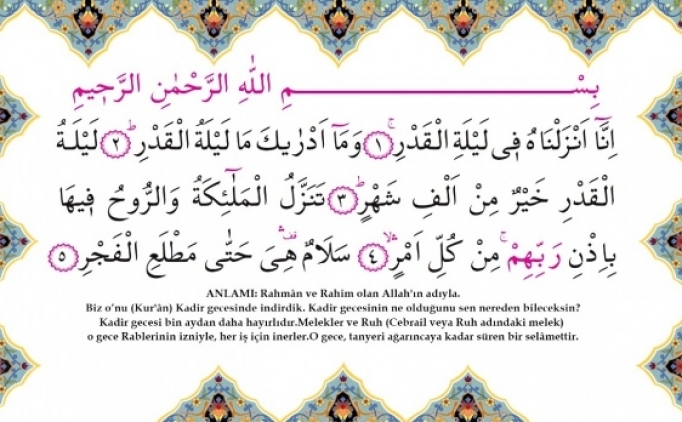 بِسْــــــــــــــــــمِ اللّٰهِ الرَّحْمٰنِ الرَّح۪يمِ
اِنَّٓا اَنْزَلْنَاهُ ف۪ي لَيْلَةِ الْقَدْرِۚ ﴿١﴾ وَمَٓا اَدْرٰيكَ مَا لَيْلَةُ الْقَدْرِۜ ﴿٢﴾ لَيْلَةُ
الْقَدْرِ خَيْرٌ مِنْ اَلْفِ شَهْرٍۜ ﴿٣﴾ تَنَزَّلُ الْمَلٰٓئِكَةُ وَالرُّوحُ ف۪يهَا
بِاِذْنِ رَبِّهِمْۚ مِنْ كُلِّ اَمْرٍۙۛ ﴿٤﴾ سَلَامٌ۠ۛ هِيَ حَتّٰى مَطْلَعِ الْفَجْرِ ﴿٥﴾
ANLAMI: Rahmân ve Rahîm olan Allah'ın adıyla.
Biz o'nu (Kur'ân) Kadir gecesinde indirdik. Kadir gecesinin ne olduğunu sen nereden bileceksin?
Kadir gecesi bin aydan daha hayırlıdır.Melekler ve Ruh (Cebrail veya Ruh adındaki melek)
o gece Rablerinin izniyle, her iş için inerler.O gece, tanyeri ağarıncaya kadar süren bir selâmettir.